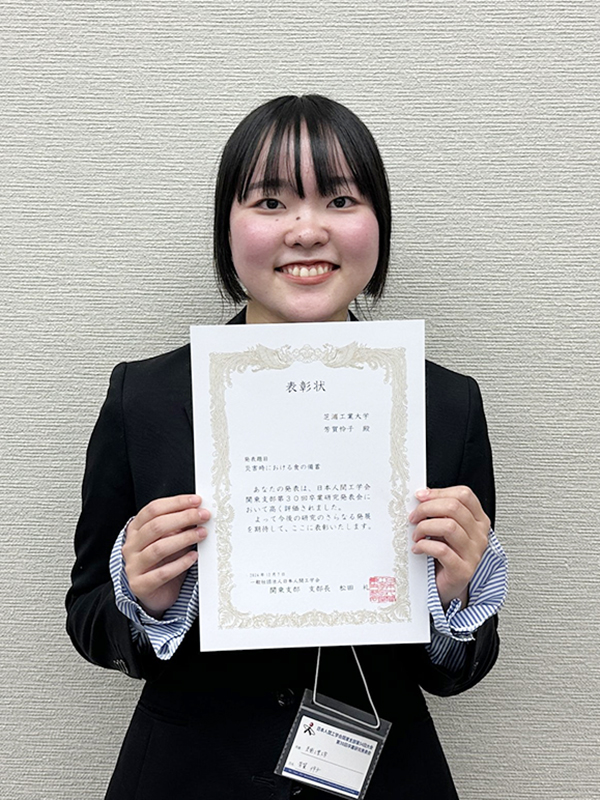 表彰状
芝浦工業大学
芳賀怜子 殿
発表題目
災害時における食の備蓄
あなたの発表は、日本人間工学会
関東支部第30回卒業研究発表会に
おいて高く評価されました。
よって今後の研究のさらなる発展
を期待して、ここに表彰いたします。
2024年12月7日
一般社団法人日本人間工学会
関東支部 支部長 松田 礼
日本人間工学会関東支部第54回大会
第30回卒業研究発表会